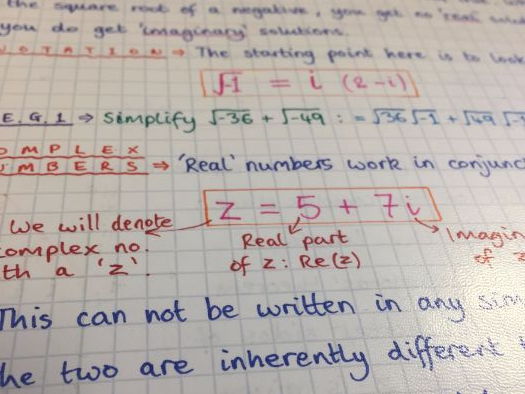 the square root of a negative, you get no 'real
you do get 'imaginary' solutions.
NOTATION → The starting point here is to look
√-1 = i (2-i)
E.G.1 ⇒ Simplify √-36 + √-49 : = √36 √-1 + √49 √-1
OMPLEX
MBERS ⇒ 'Real' numbers work in conjunc
z = 5 + 7i
We will denote
complex no.
th a 'z'.
Real part
of z : Re(z)
Imagin
of z
This can not be written in any sim
he two are inherently different